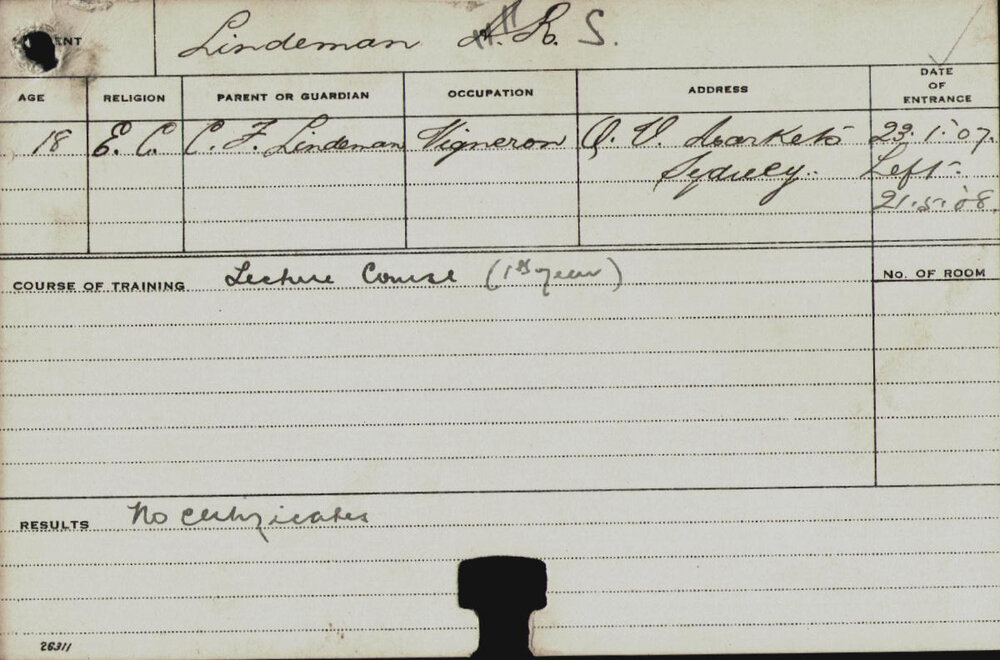 Lindeman R. S.
AGE RELIGION PARENT OR GUARDIAN OCCUPATION ADDRESS DATE OF ENTRANCE
18 E. C. C. F. Lindeman Vigneron Q. V. Markets 23.1.'07.
Sydney. Left
21.5.'08.
COURSE OF TRAINING Lecture Course (1st year) No. OF ROOM
RESULTS No certificates
26311